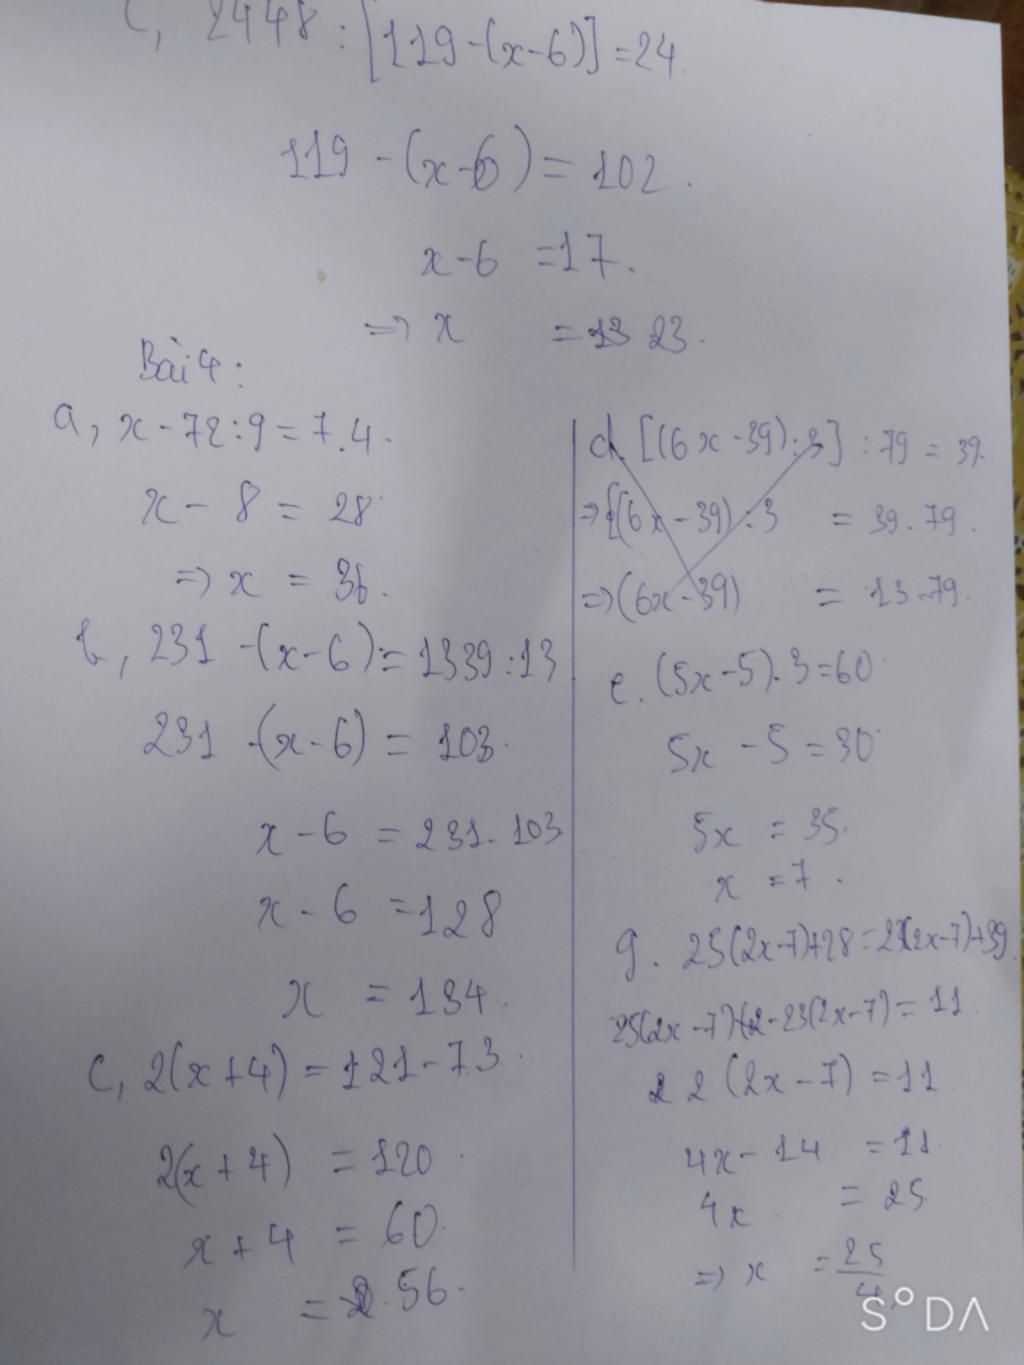 C, 2448 : [119-(x-6)] = 24
119 - (x-6) = 102.
x-6 = 17.
=> x = 23.
Bài 4:
a, x - 72:9 = 7.4.
x - 8 = 28
=> x = 36.
b, 231 -(x-6) = 1339:13
231 -(x-6) = 103.
x - 6 = 231-103
x - 6 = 128
x = 134.
C, 2(x+4) = 121-7.3
2(x+4) = 120
x + 4 = 60.
x = 56.
d. [(6x-39):3] : 79 = 39.
=> [(6x-39):3 = 39.79.
=> (6x-39) = 13.79.
e. (5x-5).3=60
5x - 5 = 30
5x = 35.
x = 7.
g. 25(2x-7)+28=23(2x-7)+39.
25(2x-7)-23(2x-7) = 11.
2(2x-7) = 11.
4x - 14 = 11.
4x = 25
=> x = 25/4
S°DA